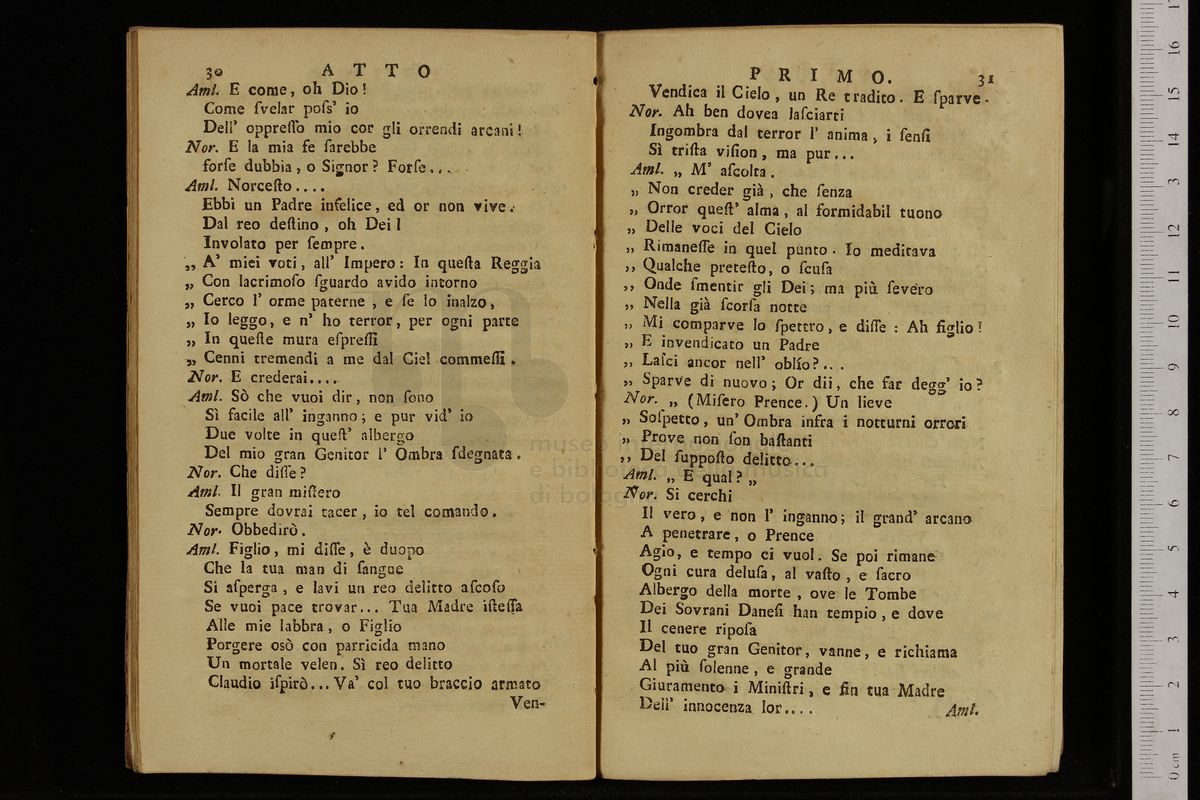 30 ATTO
Aml. E come, oh Dio!
Come ſvelar poſs' io
Dell' oppreſſo mio cor gli orrendi arcani!
Nor. E la mia fe ſarebbe
forſe dubbia, o Signor? Forſe....
Aml. Norceſto....
Ebbi un Padre infelice, ed or non vive.
Dal reo deſtino, oh Dei!
Involato per ſempre.
„ A' miei voti, all' Impero: In queſta Reggia
„ Con lacrimoſo ſguardo avido intorno
„ Cerco l' orme paterne, e ſe lo inalzo,
„ Io leggo, e n' ho terror, per ogni parte
„ In queſte mura eſpreſſi
„ Cenni tremendi a me dal Ciel commeſſi.
Nor. E crederai....
Aml. Sò che vuoi dir, non ſono
Sì facile all' inganno; e pur vid' io
Due volte in queſt' albergo
Del mio gran Genitor l' Ombra ſdegnata.
Nor. Che diſſe?
Aml. Il gran miſtero
Sempre dovrai tacer, io tel comando.
Nor. Obbedirò.
Aml. Figlio, mi diſſe, è duopo
Che la tua man di ſangue
Si aſperga, e lavi un reo delitto aſcoſo
Se vuoi pace trovar... Tua Madre iſteſſa
Alle mie labbra, o Figlio
Porgere osò con parricida mano
Un mortale velen. Sì reo delitto
Claudio iſpirò... Va' col tuo braccio armato
Ven-
PRIMO. 31
Vendica il Cielo, un Re tradito. E ſparve.
Nor. Ah ben dovea laſciarti
Ingombra dal terror l' anima, i ſenſi
Sì triſta viſion, ma pur...
Aml. „ M' aſcolta.
„ Non creder già, che ſenza
„ Orror queſt' alma, al formidabil tuono
„ Delle voci del Cielo
„ Rimaneſſe in quel punto. Io meditava
„ Qualche preteſto, o ſcuſa
„ Onde ſmentir gli Dei; ma più ſevero
„ Nella già ſcorſa notte
„ Mi comparve lo ſpettro, e diſſe: Ah figlio!
„ E invendicato un Padre
„ Laſci ancor nell' oblío?...
„ Sparve di nuovo; Or dii, che far degg' io?
Nor. „ (Miſero Prence.) Un lieve
„ Soſpetto, un' Ombra infra i notturni orrori
„ Prove non ſon baſtanti
„ Del ſuppoſto delitto...
Aml. „ E qual? „
Nor. Si cerchi
Il vero, e non l' inganno; il grand' arcano
A penetrare, o Prence
Agio, e tempo ci vuol. Se poi rimane
Ogni cura deluſa, al vaſto, e ſacro
Albergo della morte, ove le Tombe
Dei Sovrani Daneſi han tempio, e dove
Il cenere ripoſa
Del tuo gran Genitor, vanne, e richiama
Al più ſolenne, e grande
Giuramento i Miniſtri, e fin tua Madre
Dell' innocenza lor....
Aml.